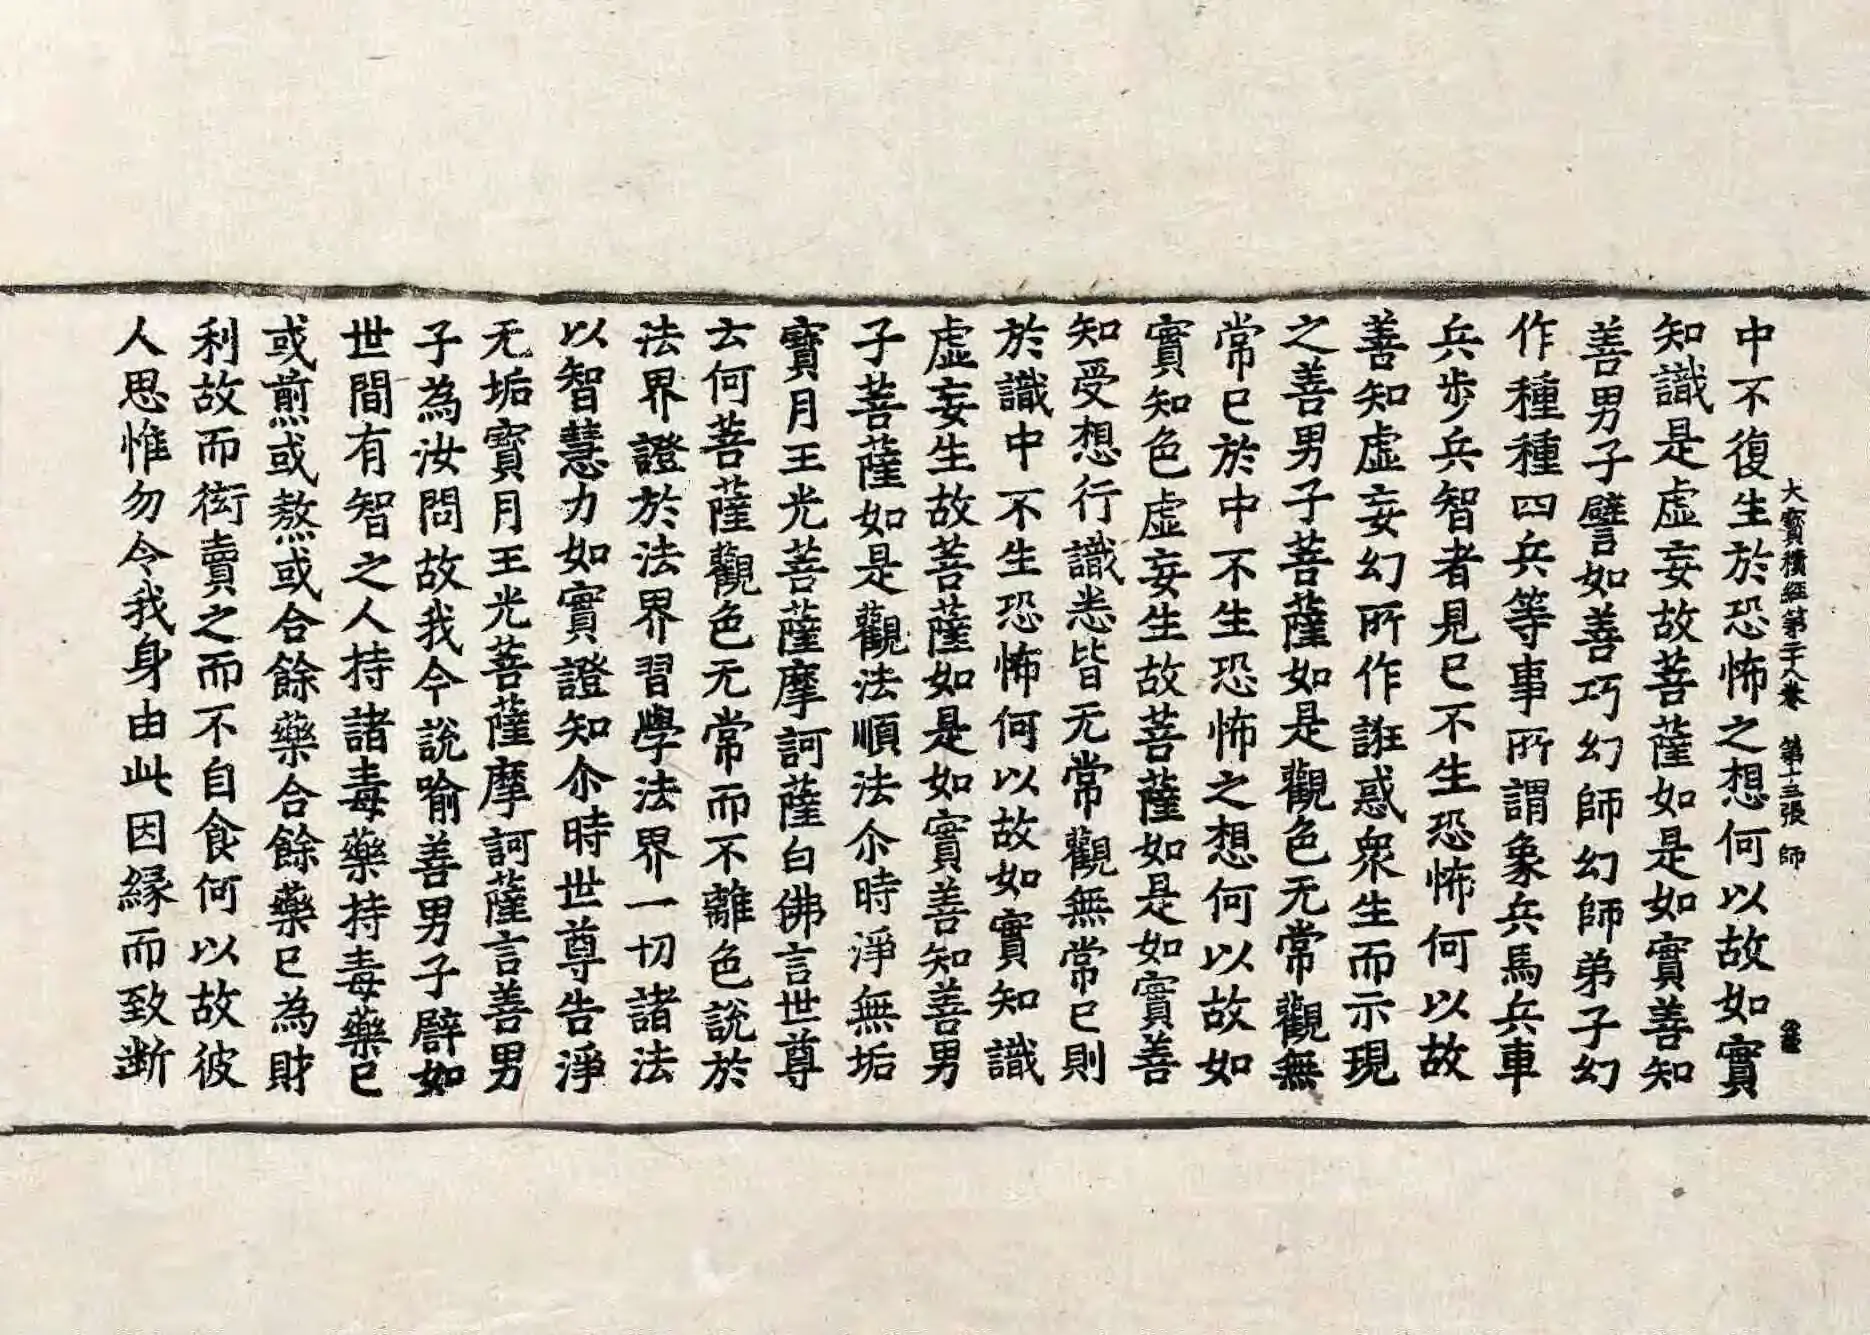 大寶積經第二十八卷 第十三張 師
中不復生於恐怖之想何以故如實
知識是虛妄故菩薩如是如實善知
善男子譬如善巧幻師幻師弟子幻
作種種四兵等事所謂象兵馬兵車
兵步兵智者見已不生恐怖何以故
善知虛妄幻所作誑惑衆生而示現
之善男子菩薩如是觀色无常觀無
常已於中不生恐怖之想何以故如
實知色虛妄生故菩薩如是如實善
知受想行識悉皆无常觀無常已則
於識中不生恐怖何以故如實知識
虛妄生故菩薩如是如實善知善男
子菩薩如是觀法順法尒時淨無垢
寶月王光菩薩摩訶薩白佛言世尊
云何菩薩觀色无常而不離色說於
法界證於法界習學法界一切諸法
以智慧力如實證知尒時世尊告淨
无垢寶月王光菩薩摩訶薩言善男
子為汝問故我今說喻善男子辟如
世間有智之人持諸毒藥持毒藥已
或煎或熬或合餘藥合餘藥已為財
利故而衒賣之而不自食何以故彼
人思惟勿令我身由此因緣而致断